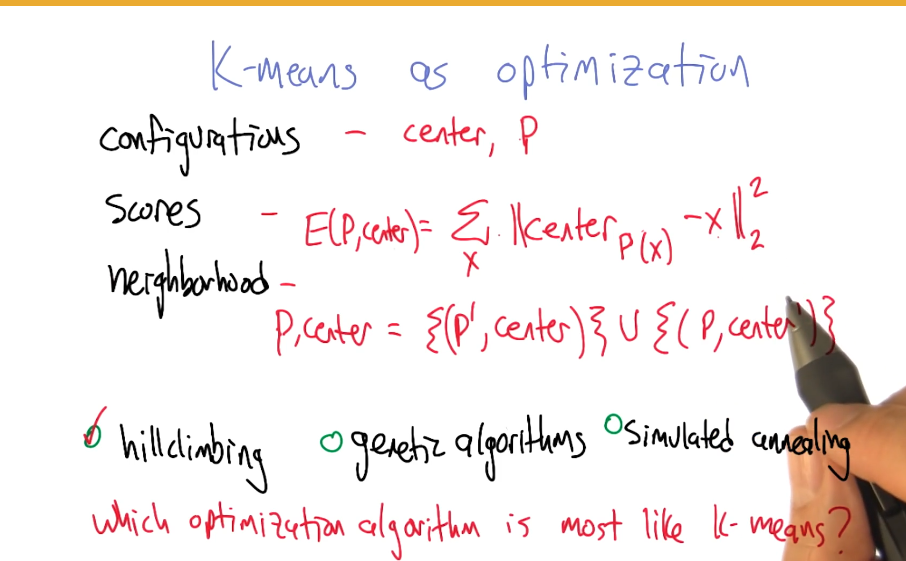 K-means as optimization
configurations - center, P
scores - E(P,center)= ∑x ||center_P(x) -x||₂²
neighborhood -
P,center = {(P', center)} ∪ {(P, center')}
hillclimbing genetic algorithms simulated annealing
which optimization algorithm is most like k-means?